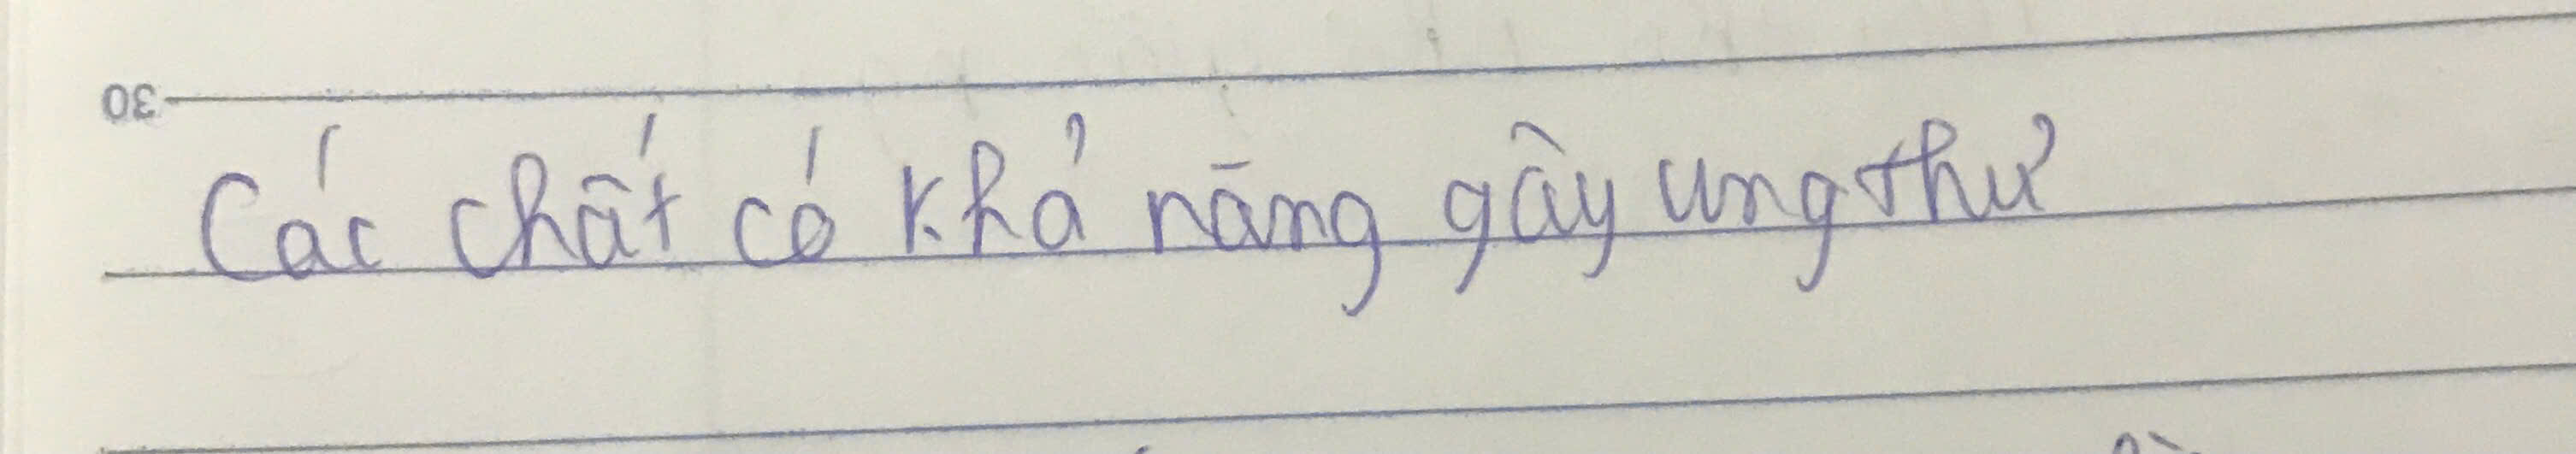 30
Các chất có khả năng gây ung thư